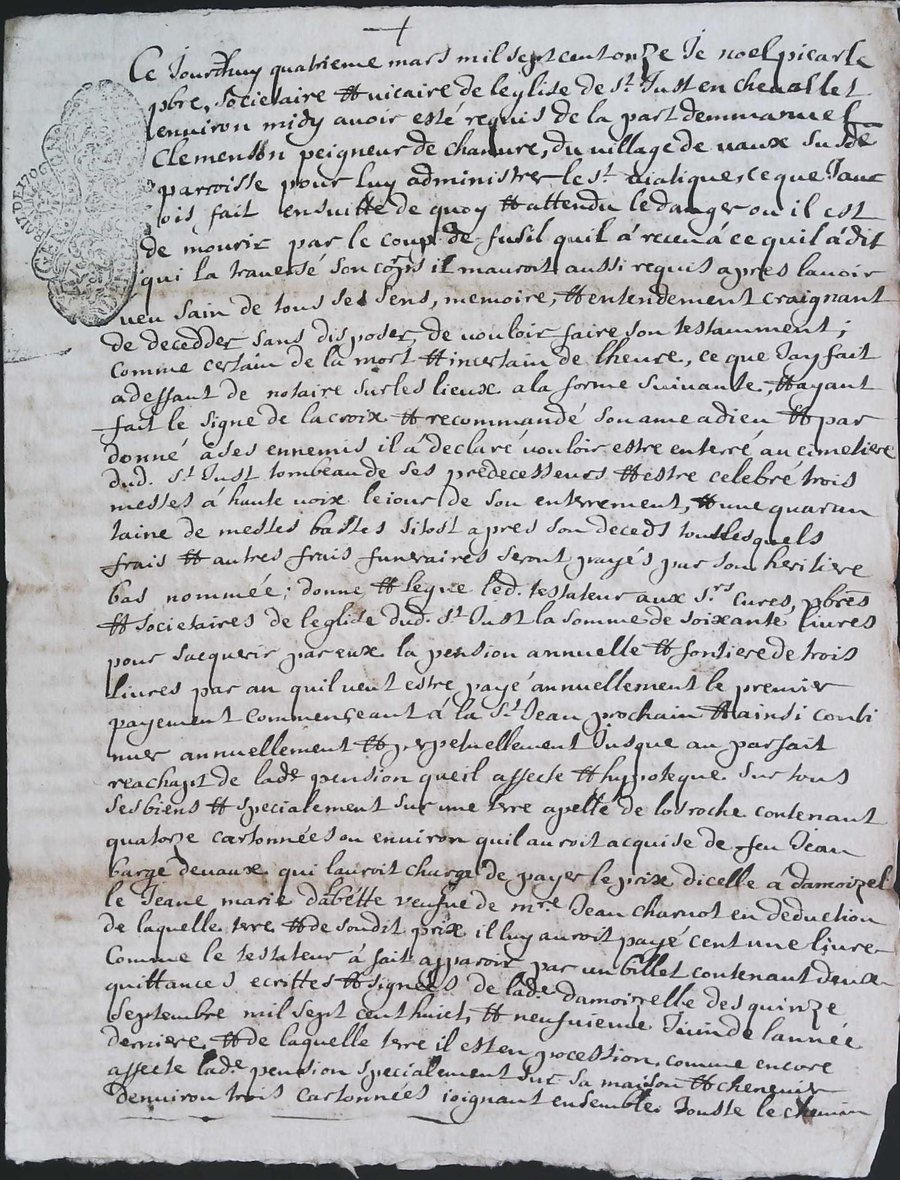 Ce Jourdhuy quatrieme mars mil sept cent onze Je noel picarle
pbre, Societaire et vicaire de leglise de St. Just en chevallet
environ midy avoir esté requis de la part demmanuel
Clemenson peigneur de chanvre, du village de vaux susde
parroisse pour luy administrer le St. viatique, ce que Jau
rois fait ensuitte de quoy et attendu le danger ou il est
de mourir par le coup de fusil quil à receu à ce quil à dit
qui la traversé son corps il mauroit aussi requis apres lavoir
veu sain de tous ses sens, memoire, et entendement craignant
de decedder sans disposer, de vouloir faire son testamment;
comme certain de la mort et incertain de lheure, ce que Jay fait
adeffaut de notaire sur les lieux a la forme suivante, et ayant
fait le signe de la croix et recommandé son ame a dieu et par
donné à ses ennemis il à declaré vouloir estre enterré au cimetiere
dud. St. Just tombeau de ses predecesseurs et estre celebré trois
messes à haute voix le jour de son enterrement, et une quaran
taine de messes basses sitost apres son decedz tous lesquels
frais et autres frais funeraires seront payés par son heritiere
bas nommée; donne et legue led. testateur aux Srs. cures, pbres
et societaires de leglise dud. St. Just la somme de soixante livres
pour sacquerir par eux la pension annuelle et fonsiere de trois
livres par an quil veut estre payé annuellement le premier
payement commençeant à la St. Jean prochain et ainsi conti
nuer annuellement et perpetuellement Jusque au parfait
reachapt de lade. pension queil affecte et hypoteque sur tous
ses biens et specialement sur une terre apellé de la roche contenant
quatorze cartonnées ou environ quil auroit acquise de feu Jean
barge de vaux qui lauroit chargé de payer le prix dicelle à damoizel
le Jeane marie dabette veufue de mre. Jean charuot en deduction
de laquelle terre et de son dit prix il luy auroit payé cent une livre
Comme le testateur à fait apparoir par un billet contenant deux
quittances ecrittes et signées de lade. damoizelle des quinze
septembre mil sept cent huict, et neufvieme Juin de lannée
derniere, et de laquelle terre il est en pocession comme encore
affecte lade. pension specialement sur sa maison et chenevier
denviron trois cartonnées joignant ensemble. Jouste le chemin